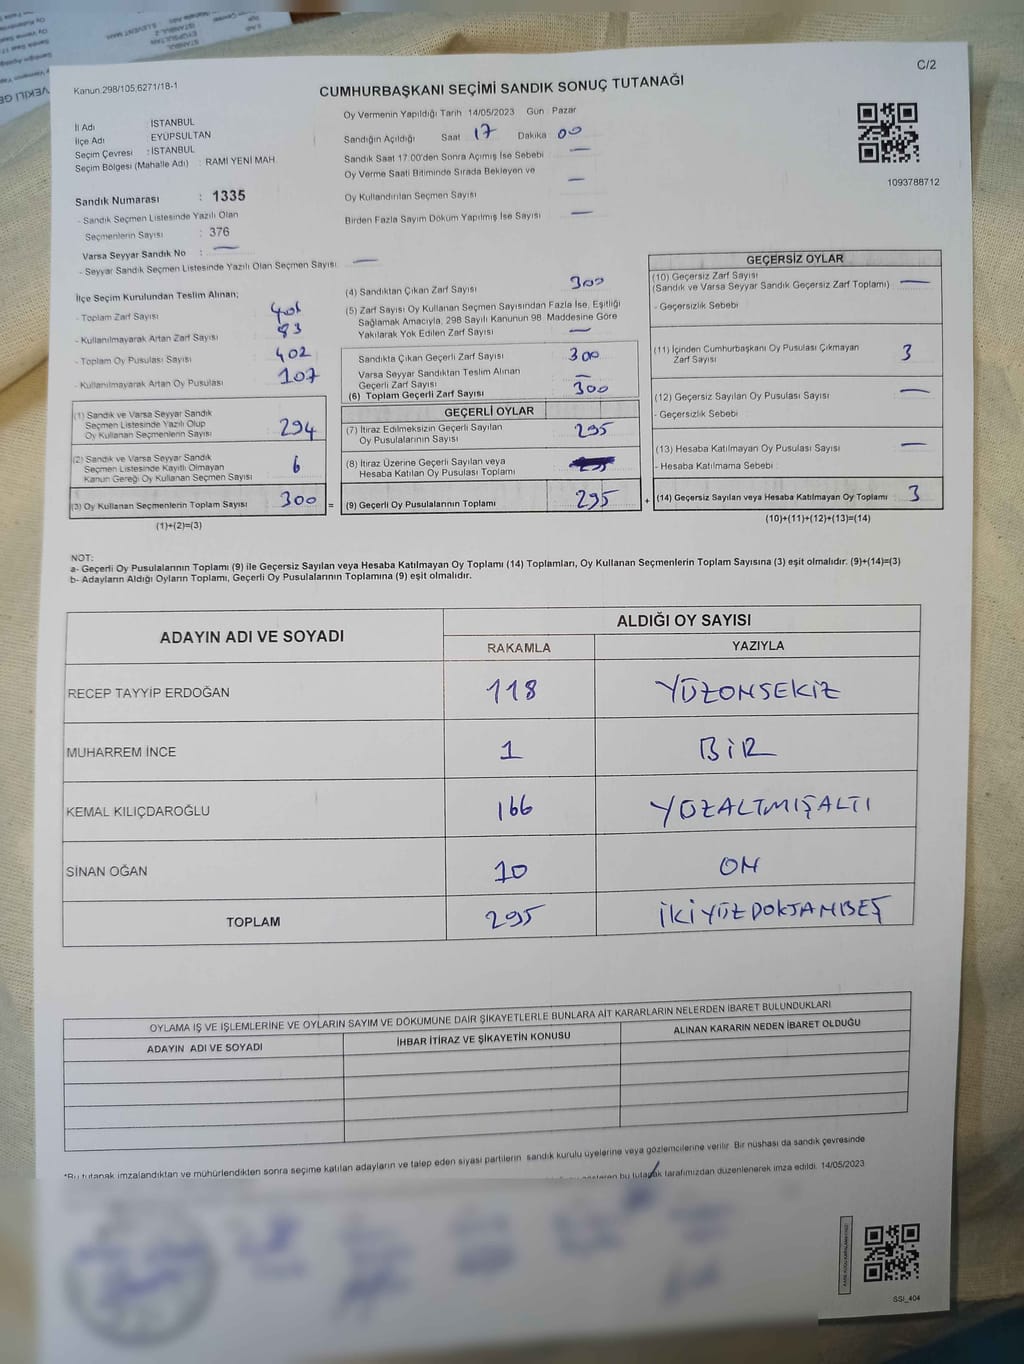 C/2
Kanun.298/105,6271/18-1
CUMHURBAŞKANI SEÇİMİ SANDIK SONUÇ TUTANAĞI
İl Adı : İSTANBUL
İlçe Adı : EYÜPSULTAN
Seçim Çevresi : İSTANBUL
Seçim Bölgesi (Mahalle Adı) : RAMİ YENİ MAH.
Sandık Numarası : 1335
- Sandık Seçmen Listesinde Yazılı Olan
Seçmenlerin Sayısı : 376
Varsa Seyyar Sandık No : —
- Seyyar Sandık Seçmen Listesinde Yazılı Olan Seçmen Sayısı —
Oy Vermenin Yapıldığı Tarih 14/05/2023 Gün : Pazar
Sandığın Açıldığı Saat 17 Dakika 00
Sandık Saat 17.00'den Sonra Açımış İse Sebebi —
Oy Verme Saati Bitiminde Sırada Bekleyen ve
Oy Kullandırılan Seçmen Sayısı —
Birden Fazla Sayım Döküm Yapılmış İse Sayısı —
1093788712
İlçe Seçim Kurulundan Teslim Alınan;
- Toplam Zarf Sayısı
- Kullanılmayarak Artan Zarf Sayısı 83
- Toplam Oy Pusulası Sayısı 402
- Kullanılmayarak Artan Oy Pusulası 107
(1) Sandık ve Varsa Seyyar Sandık
Seçmen Listesinde Yazılı Olup
Oy Kullanan Seçmenlerin Sayısı 294
(2) Sandık ve Varsa Seyyar Sandık
Seçmen Listesinde Kayıtlı Olmayan
Kanun Gereği Oy Kullanan Seçmen Sayısı 6
(3) Oy Kullanan Seçmenlerin Toplam Sayısı 300 =
(1)+(2)=(3)
(4) Sandıktan Çıkan Zarf Sayısı 300
(5) Zarf Sayısı Oy Kullanan Seçmen Sayısından Fazla İse, Eşitliği
Sağlamak Amacıyla, 298 Sayılı Kanunun 98. Maddesine Göre
Yakılarak Yok Edilen Zarf Sayısı —
Sandıkta Çıkan Geçerli Zarf Sayısı 300
Varsa Seyyar Sandıktan Teslim Alınan
Geçerli Zarf Sayısı —
(6) Toplam Geçerli Zarf Sayısı 300
GEÇERLİ OYLAR
(7) İtiraz Edilmeksizin Geçerli Sayılan
Oy Pusulalarının Sayısı 295
(8) İtiraz Üzerine Geçerli Sayılan veya
Hesaba Katılan Oy Pusulası Toplamı
(9) Geçerli Oy Pusulalarının Toplamı 295 +
GEÇERSİZ OYLAR
(10) Geçersiz Zarf Sayısı
(Sandık ve Varsa Seyyar Sandık Geçersiz Zarf Toplamı) —
- Geçersizlik Sebebi
(11) İçinden Cumhurbaşkanı Oy Pusulası Çıkmayan
Zarf Sayısı 3
(12) Geçersiz Sayılan Oy Pusulası Sayısı —
- Geçersizlik Sebebi
(13) Hesaba Katılmayan Oy Pusulası Sayısı —
- Hesaba Katılmama Sebebi
(14) Geçersiz Sayılan veya Hesaba Katılmayan Oy Toplamı 3
(10)+(11)+(12)+(13)=(14)
NOT:
a- Geçerli Oy Pusulalarının Toplamı (9) ile Geçersiz Sayılan veya Hesaba Katılmayan Oy Toplamı (14) Toplamları, Oy Kullanan Seçmenlerin Toplam Sayısına (3) eşit olmalıdır. (9)+(14)=(3)
b- Adayların Aldığı Oyların Toplamı, Geçerli Oy Pusulalarının Toplamına (9) eşit olmalıdır.
ADAYIN ADI VE SOYADI ALDIĞI OY SAYISI
RAKAMLA YAZIYLA
RECEP TAYYİP ERDOĞAN 118 YÜZONSEKİZ
MUHARREM İNCE 1 BİR
KEMAL KILIÇDAROĞLU 166 YÜZALTMIŞALTI
SİNAN OĞAN 10 ON
TOPLAM 295 İKİYÜZDOKSANBEŞ
OYLAMA İŞ VE İŞLEMLERİNE VE OYLARIN SAYIM VE DÖKÜMÜNE DAİR ŞİKAYETLERLE BUNLARA AİT KARARLARIN NELERDEN İBARET BULUNDUKLARI
ADAYIN ADI VE SOYADI İHBAR İTİRAZ VE ŞİKAYETİN KONUSU ALINAN KARARIN NEDEN İBARET OLDUĞU
*Bu tutanak imzalandıktan ve mühürlendikten sonra seçime katılan adayların ve talep eden siyasi partilerin sandık kurulu üyelerine veya gözlemcilerine verilir. Bir nüshası da sandık çevresinde
bu tutanak tarafımızdan düzenlenerek imza edildi. 14/05/2023
SSİ_404